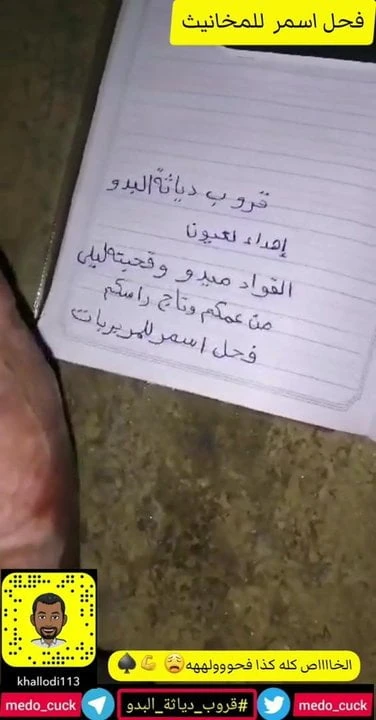 فحل اسمر للمخانيث
قروب دياثة البدو
إهداء لعيون
القواد ميدو وقحبته ليلى
من عمكم وتاج راسكم
فحل اسمر للمربربات
الخاااص كله كذا فحووولههه😩💪♠️
khallodi113
medo_cuck
#قروب_دياثة_البدو
medo_cuck